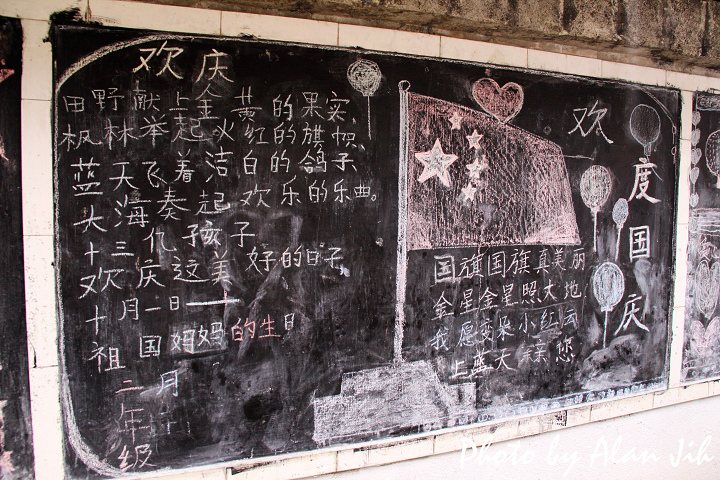 欢庆
田野献上金黄的果实、
枫林举起火红的旗帜、
蓝天飞着洁白的鸽子、
大海奏起欢乐的乐曲。
十三亿孩子
欢庆这美好的日子
十月一日——
祖国妈妈的生日
二年级
欢度国庆
国旗国旗真美丽
金星金星照大地
我愿变朵小红云
上蓝天亲您
Photo by Alan Jih